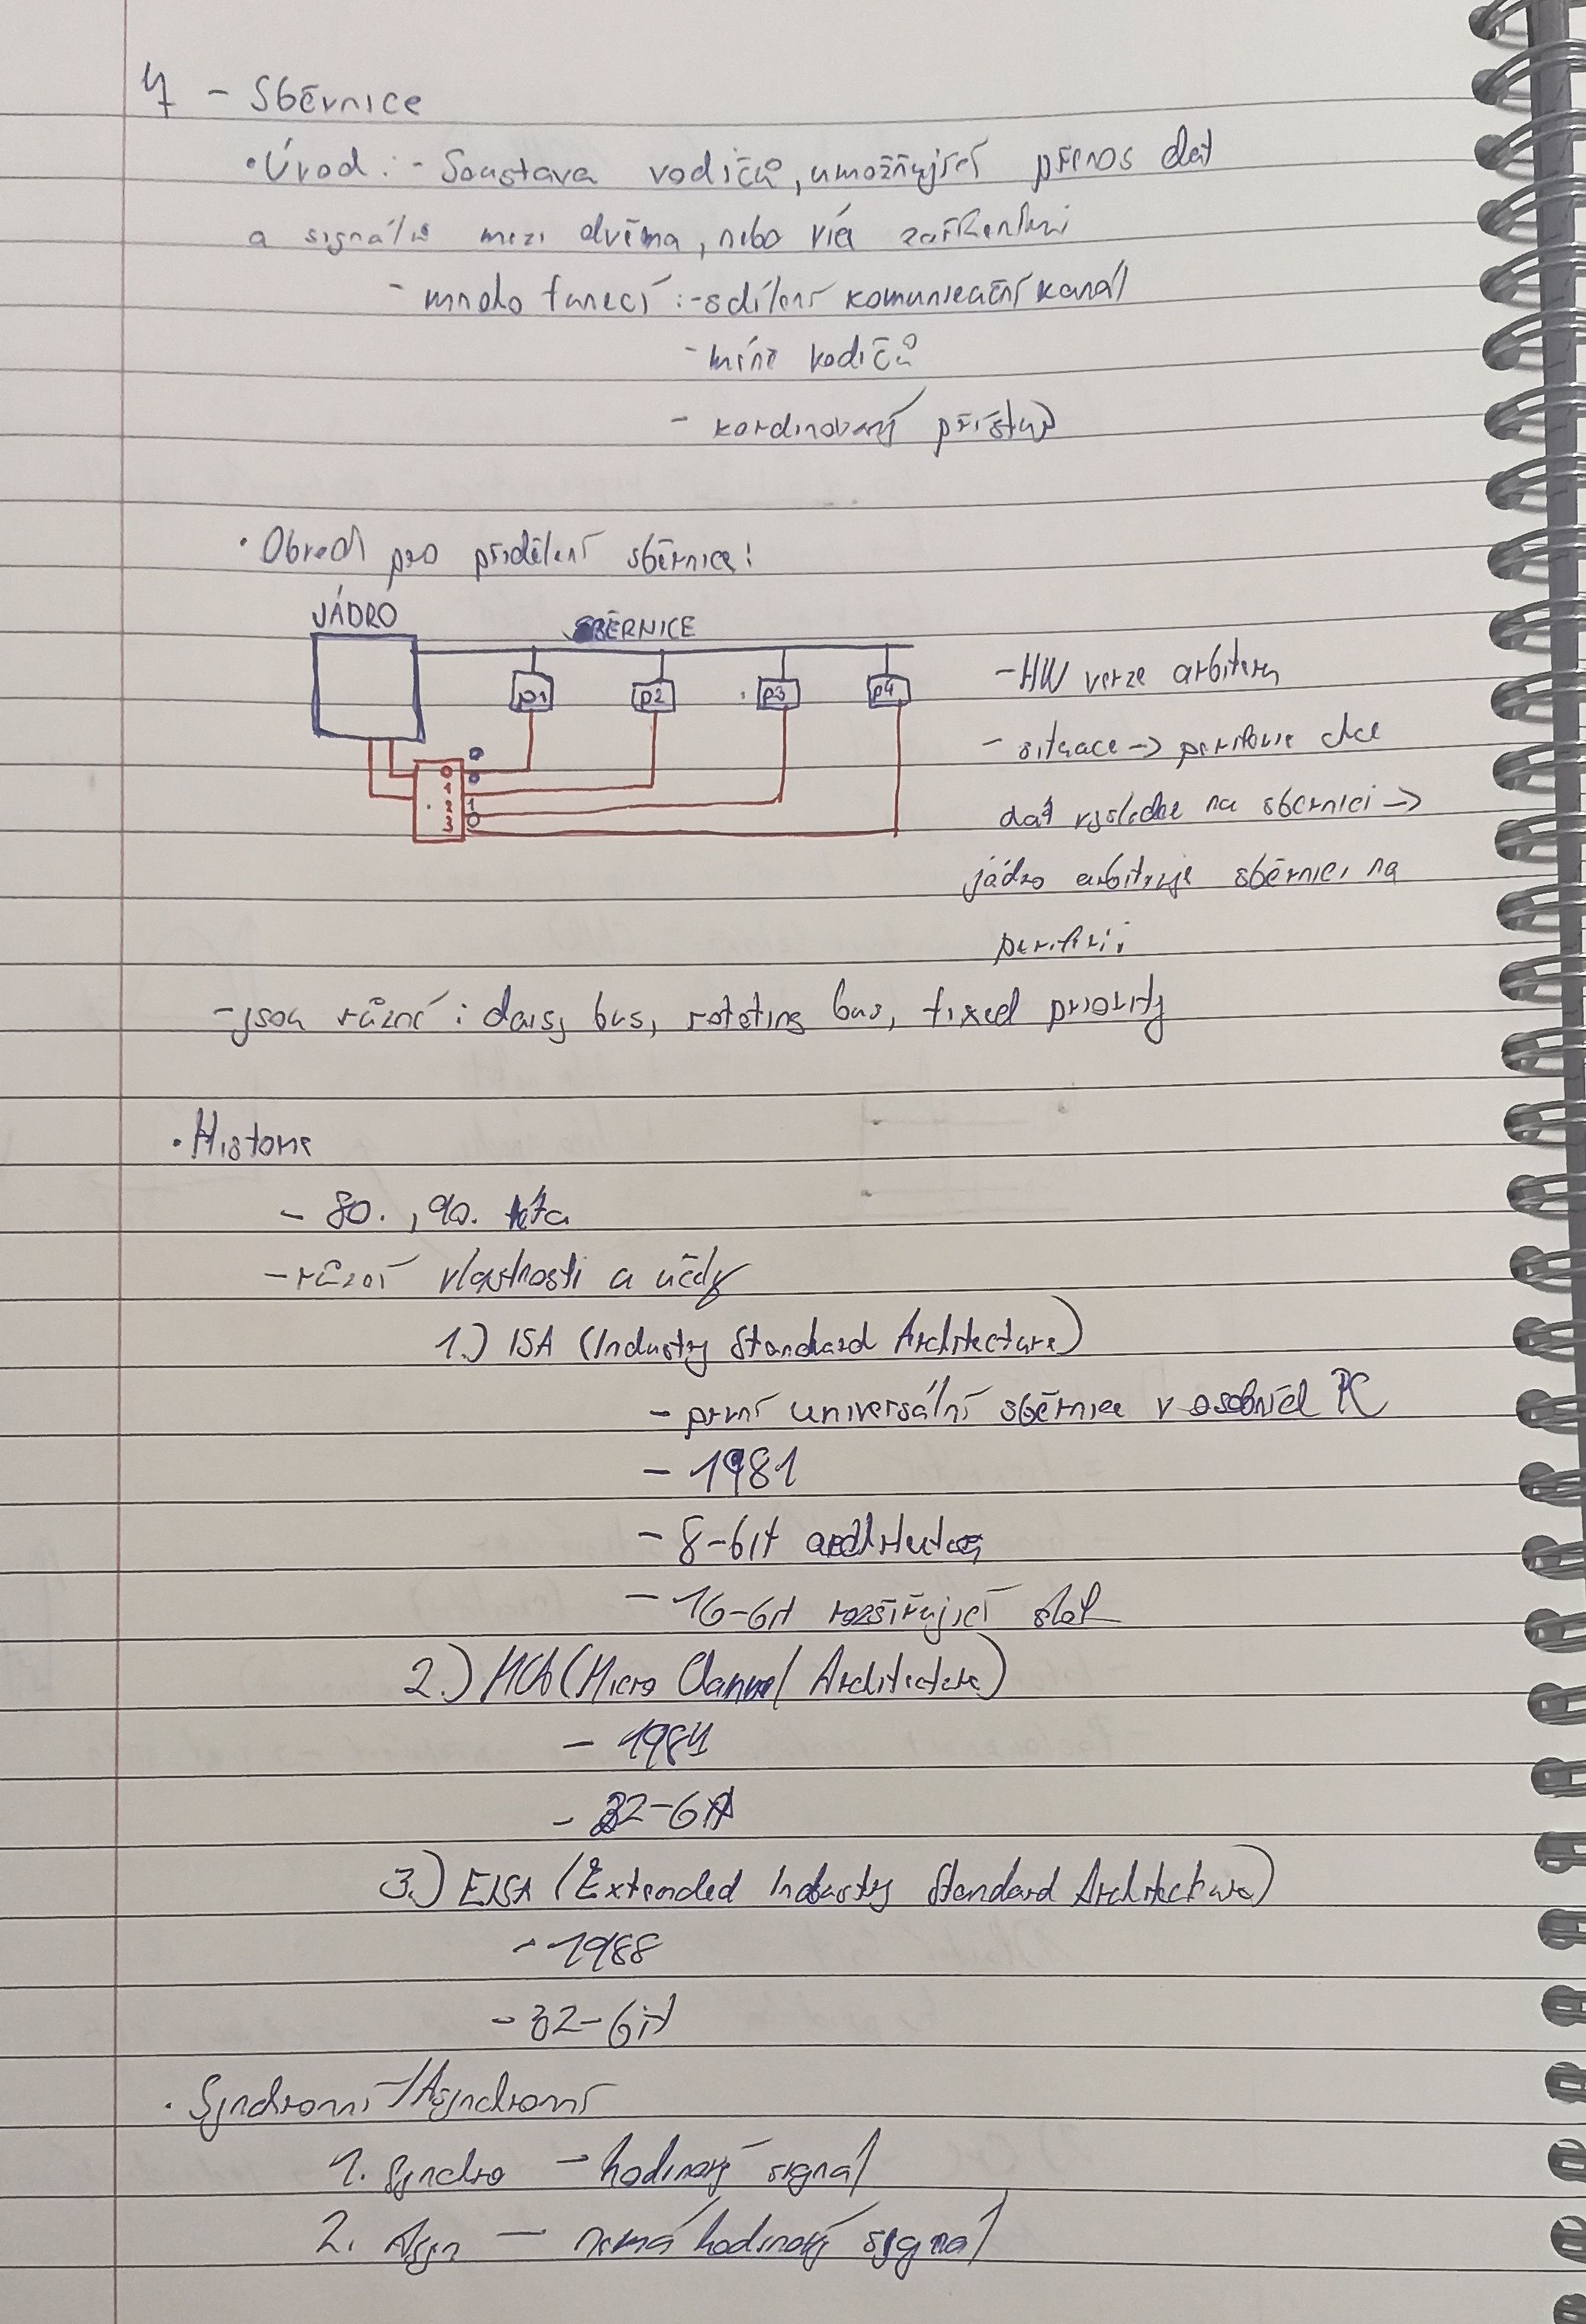 4 - Sběrnice
• Úvod : - Soustava vodičů, umožňující přenos dat
a signálů mezi dvěma, nebo více zařízeními
- mnoho funkcí : - sdílení komunikační kanál
- míně vodičů
- kordinovaný přístup
• Obvod pro přidělení sběrnice:
JÁDRO
SBĚRNICE
p1 p2 p3 p4
0
1
2 1
3 0
- HW verze arbiteru
- situace -> periferie chce
dat výsledke na sběrnici ->
jádro arbitruje sběrnici na
periferii
- jsou různé : daisy bus, rotating bus, fixed priority
• Historie
- 80. , 90. léta
- různí vlastnosti a účely
1.) ISA (Industry Standard Architecture)
- první universální sběrnice v osobních PC
- 1981
- 8-bit
- 16-bit rozšiřující slot
2.) MCA (Micro Channel Architecture)
- 1984
- 32-bit
3.) EISA (Extended Industry Standard Architecture)
- 1988
- 32-bit
• Synchronní/Asynchronní
1. Synchro - hodinový signál
2. Asyn - nemá hodinový signál